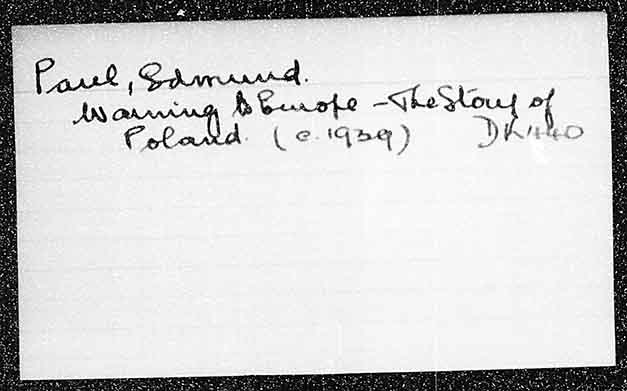 Paul, Edmund.
Warning to Europe - The Story of
Poland. (c. 1939) DK440